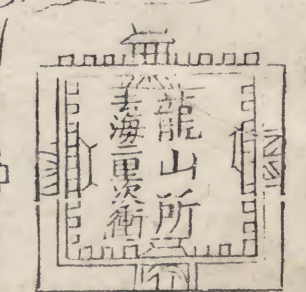 龍山所
去海二里次衝